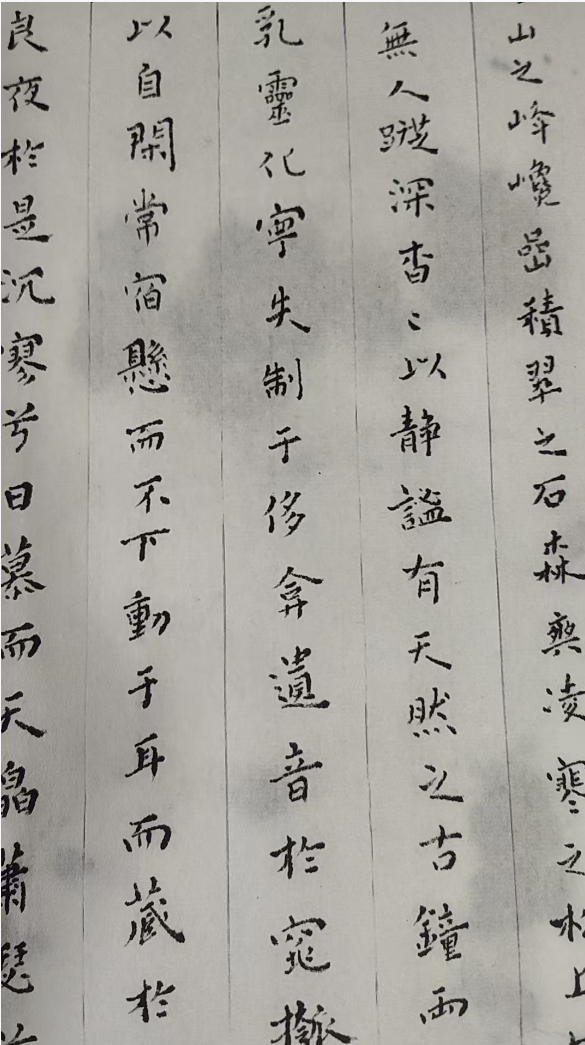 山之峰巉嵒積翠之石森爽凌寒之松上
無人蹤深杳〻以静謐有天然之古鐘而
乳靈化寧失制于侈弇遺音於寂
以自閑常宿懸而不下動于耳而藏於
良夜於是沉寥兮日慕而天晶蕭瑟